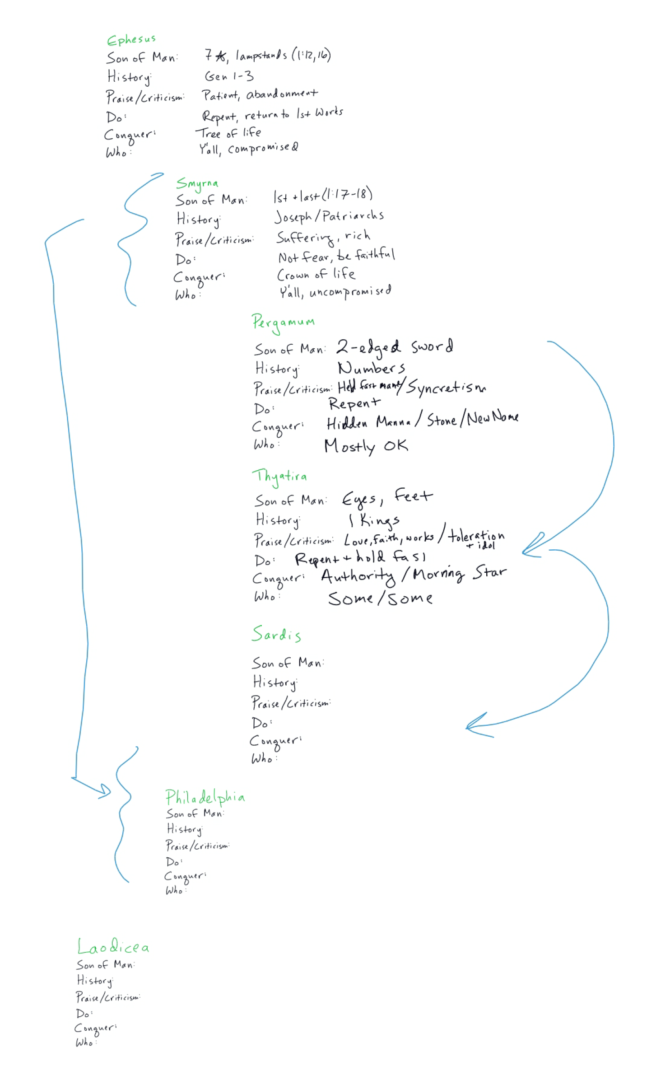 Ephesus
Son of Man: 7 ★, lampstands (1:12,16)
History: Gen 1-3
Praise/Criticism: Patient, abandonment
Do: Repent, return to 1st Works
Conquer: Tree of life
Who: Y'all, compromised
Smyrna
Son of Man: 1st + last (1:17-18)
History: Joseph/Patriarchs
Praise/Criticism: Suffering, rich
Do: Not fear, be faithful
Conquer: Crown of life
Who: Y'all, uncompromised
Pergamum
Son of Man: 2-edged sword
History: Numbers
Praise/Criticism: Held fast /Syncretism
Do: Repent
Conquer: Hidden Manna/Stone/New Name
Who: Mostly OK
Thyatira
Son of Man: Eyes, Feet
History: 1 Kings
Praise/Criticism: Love, Faith, works/toleration
+ idol
Do: Repent + hold fast
Conquer: Authority/Morning Star
Who: Some/Some
Sardis
Son of Man:
History:
Praise/Criticism:
Do:
Conquer:
Who:
Philadelphia
Son of Man:
History:
Praise/Criticism:
Do:
Conquer:
Who:
Laodicea
Son of Man:
History:
Praise/Criticism:
Do:
Conquer:
Who: